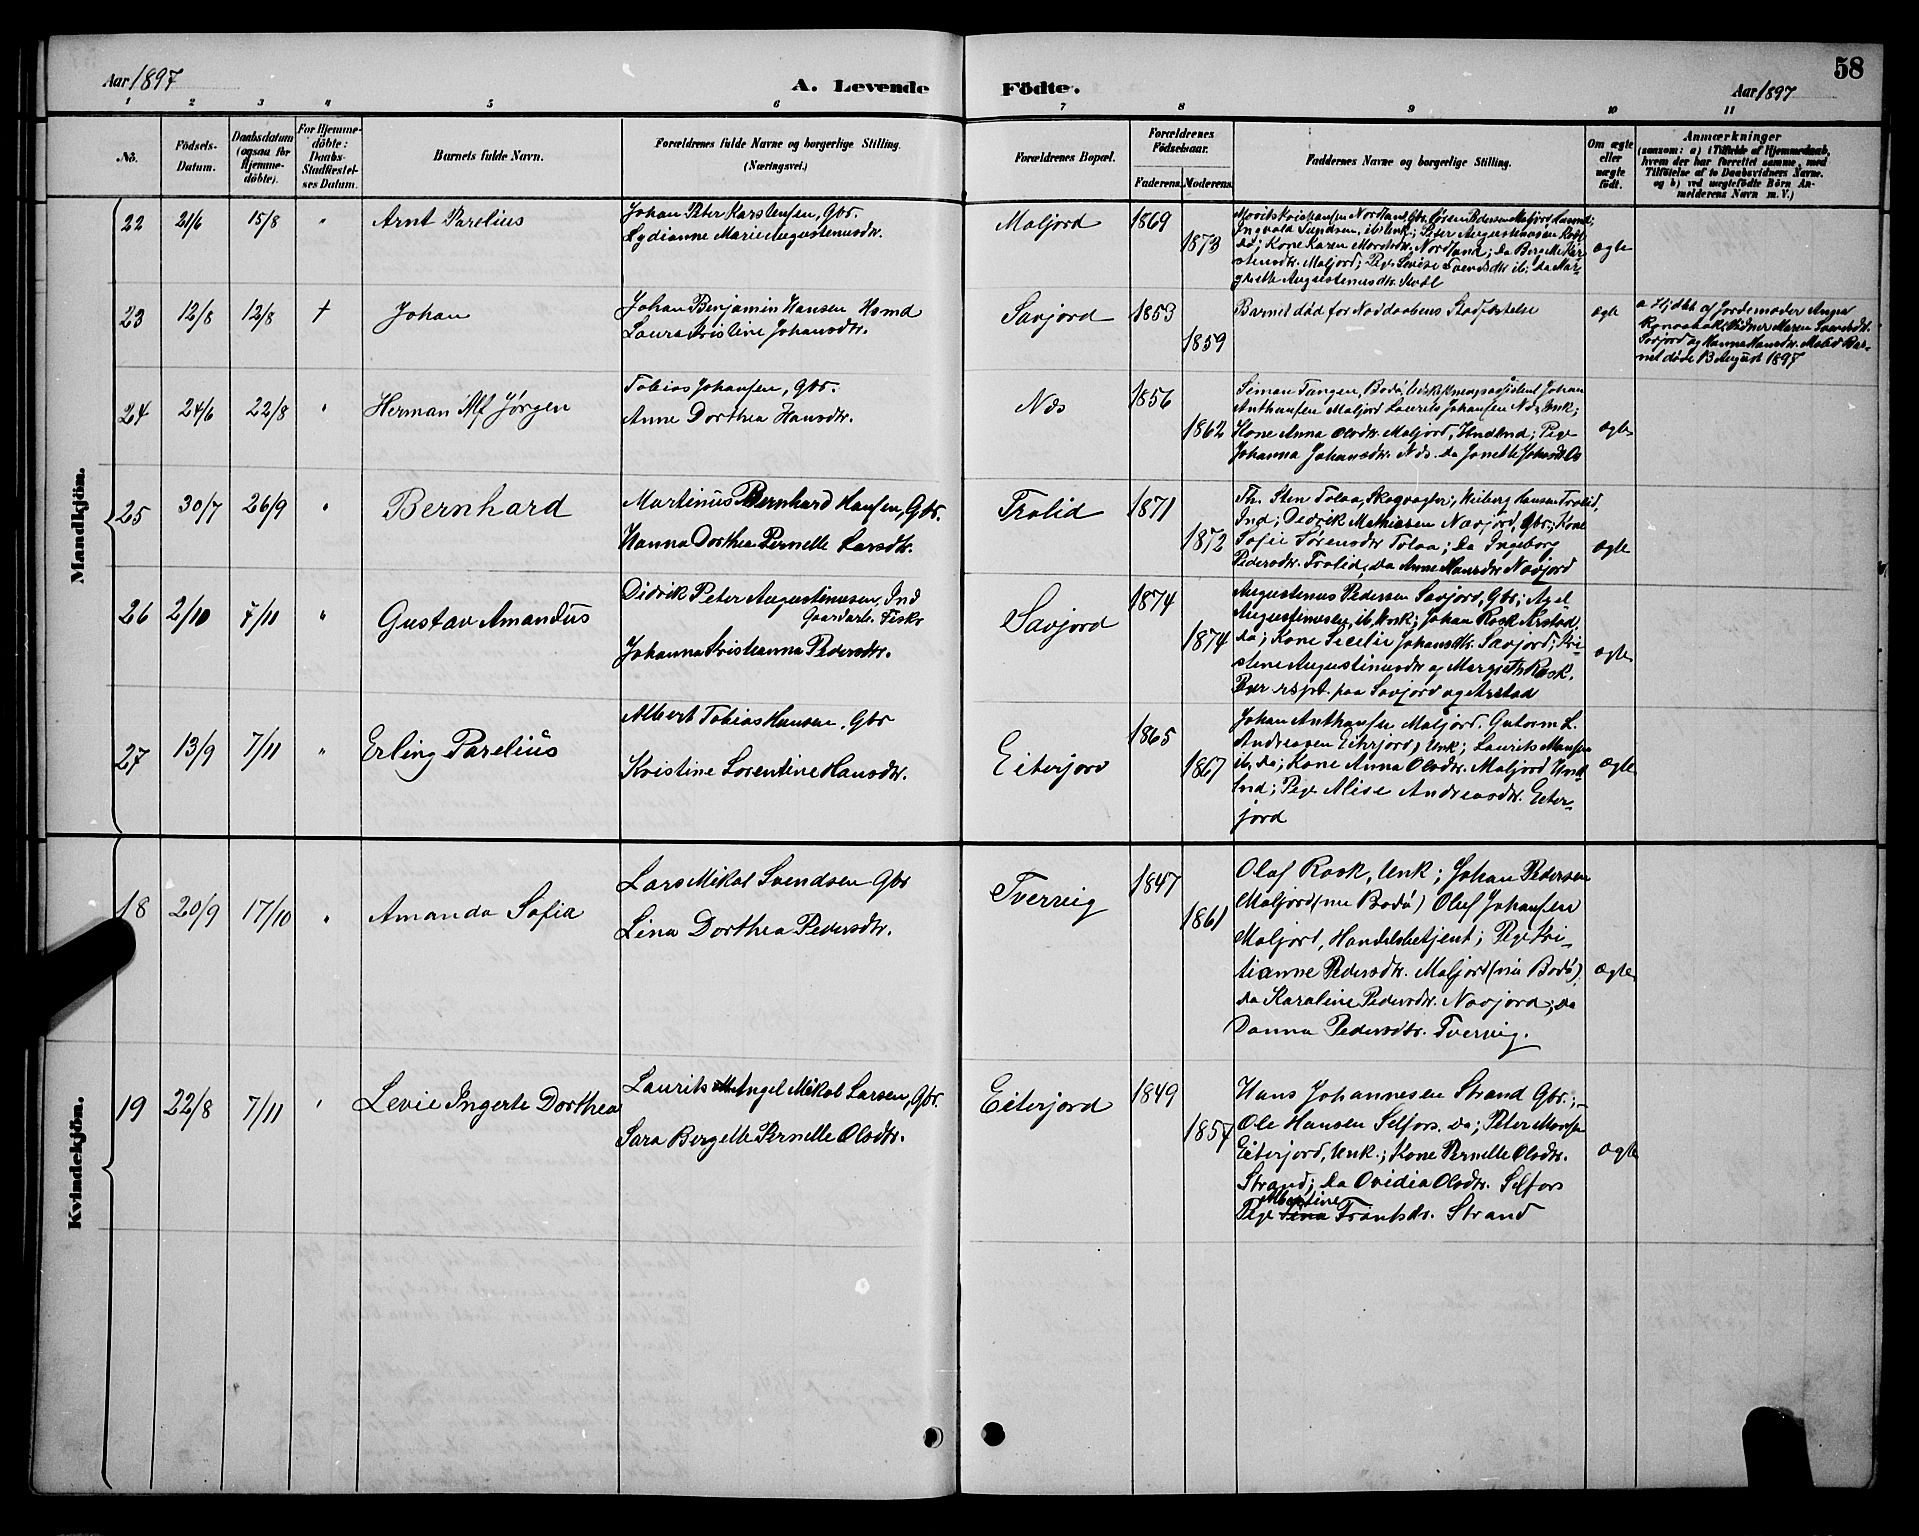 58
Aar 1897 A. Levende Födte. Aar 1897
1 2 3 4 5 6 7 8 9 10 11
No. Födsels-Datum. Daabsdatum (ogsaa for Hjemmedöbte). For Hjemmedöbte: Daabs-Stadfæstelses Datum. Barnets fulde Navn. Forældrenes fulde Navne og borgerlige Stilling. (Næringsvei.) Forældrenes Bopæl. Forældrenes Födselsaar. Faderens. Moderens. Faddernes Navne og borgerlige Stilling. Om ægte eller uægte födt. Anmærkninger (saasom: a) i Tilfælde af Hjemmedaab, hvem der har forrettet samme, med Tilföielse af to Daabsvidners Navne. og b) ved uægtefödte Börn Anmelderens Navn m. V.)
Mandkjön.
22 21/6 15/8 " Arnt Parelius
Johan Peter Karstensen, Gbr.
Lydianne Marie Augustinusdtr.
Maljord 1869 1873
Ingvald
Kone Karen
Maljord; Pige Lovise Svendsdtr ib; da Mar-
grethe Augustinusdtr.
ægte
23 12/8 12/8 + Johan
Johan Benjamin Hansen Hsmd
Laura Kristine Johansdtr.
Savjord 1853 1859
Barnet död før Nöddaabens Stadfæstelse
ægte
a Hjdbt af Jordemoder
Vidner Maren
Savjord og Hanna Hansdtr. Bar-
net døde 13 August 1897
24 24/6 22/8 " Herman Alf Jørgen
Tobias Johansen, Gbr.
Anne Dorthea Hansdtr.
Næs 1856 1862
Simon Tangen, Bodö, Johan
Anthonsen Maljord Laurits Johansen Næs, Unk;
Kone Anna Olsdtr. Maljord, Pige
Johanna Johansdtr. Næs. da Jonette
ægte
25 30/7 26/9 " Bernhard
Martinus Bernhard Hansen, Gbr.
Hanna Dorthea Pernelle Larsdtr.
Trolid 1871 1872
Th. Sten Tolaa, Skogvogter; Wiberg Hansen Trolid,
Ind; Didrik Mathiasen Navjord, Gbr; Kone
Sofie Sörensdtr Tolaa; da Ingeborg
Pedersdtr. Trolid, da Anne Hansdtr Navjord
ægte
26 2/10 7/11 " Gustav Amandus
Didrik Peter Augustinussen, Ind
Gaardarb. Fisker
Johanna Kristianna Pedersdtr.
Savjord 1874 1874
Augustinus Pedersen Savjord, Gbr; Axel
Augustinussen, ib, Unk; Johan Rosk Arstad,
da; Kone Secilie Johansdtr. Savjord; Kri-
stine Augustinusdtr og Margreth Rosk.
Piger paa Savjord og Arstad
ægte
27 13/9 7/11 " Erling Parelius
Albert Tobias Hansen, Gbr
Kristine Lorentine Hansdtr.
Eiterjord 1865 1867
Johan Anthonsen Maljord, Gutorm L.
Andreasen Eiterjord, Unk; Laurits Monsen
ib, da; Kone Anna Olsdtr. Maljord
Ind; Pige Alise Andreasdtr. Eiter-
jord
ægte
Kvindekjön.
18 20/9 17/10 " Amanda Sofia
Lars Mikal Svendsen Gbr
Lina Dorthea Pedersdtr.
Tvervig 1847 1861
Olaf Rosk, Unk; Johan Pedersen
Maljord (nu Bodö) Oluf Johansen
Maljord, Handelsbetjent; Pige Kri-
stianne Pedersdtr. Maljord (nu Bodö),
da Karoline Pedersdtr. Navjord; da
Danna Pedersdtr. Tvervig.
ægte
19 22/8 7/11 " Levie Ingerte Dorthea
Laurits Angel Mikal Larsen, Gbr.
Sara Bergette Pernelle Olsdtr.
Eiterjord 1849 1857
Hans Johannesen Strand Gbr;
Ole Hansen Selfors. da; Peter Monsen
Eiterjord, Unk.; Kone Pernelle Olsdtr.
Strand; da Ovidia Olsdtr. Selfors
Albertine
Pige Frantsdr. Strand
ægte